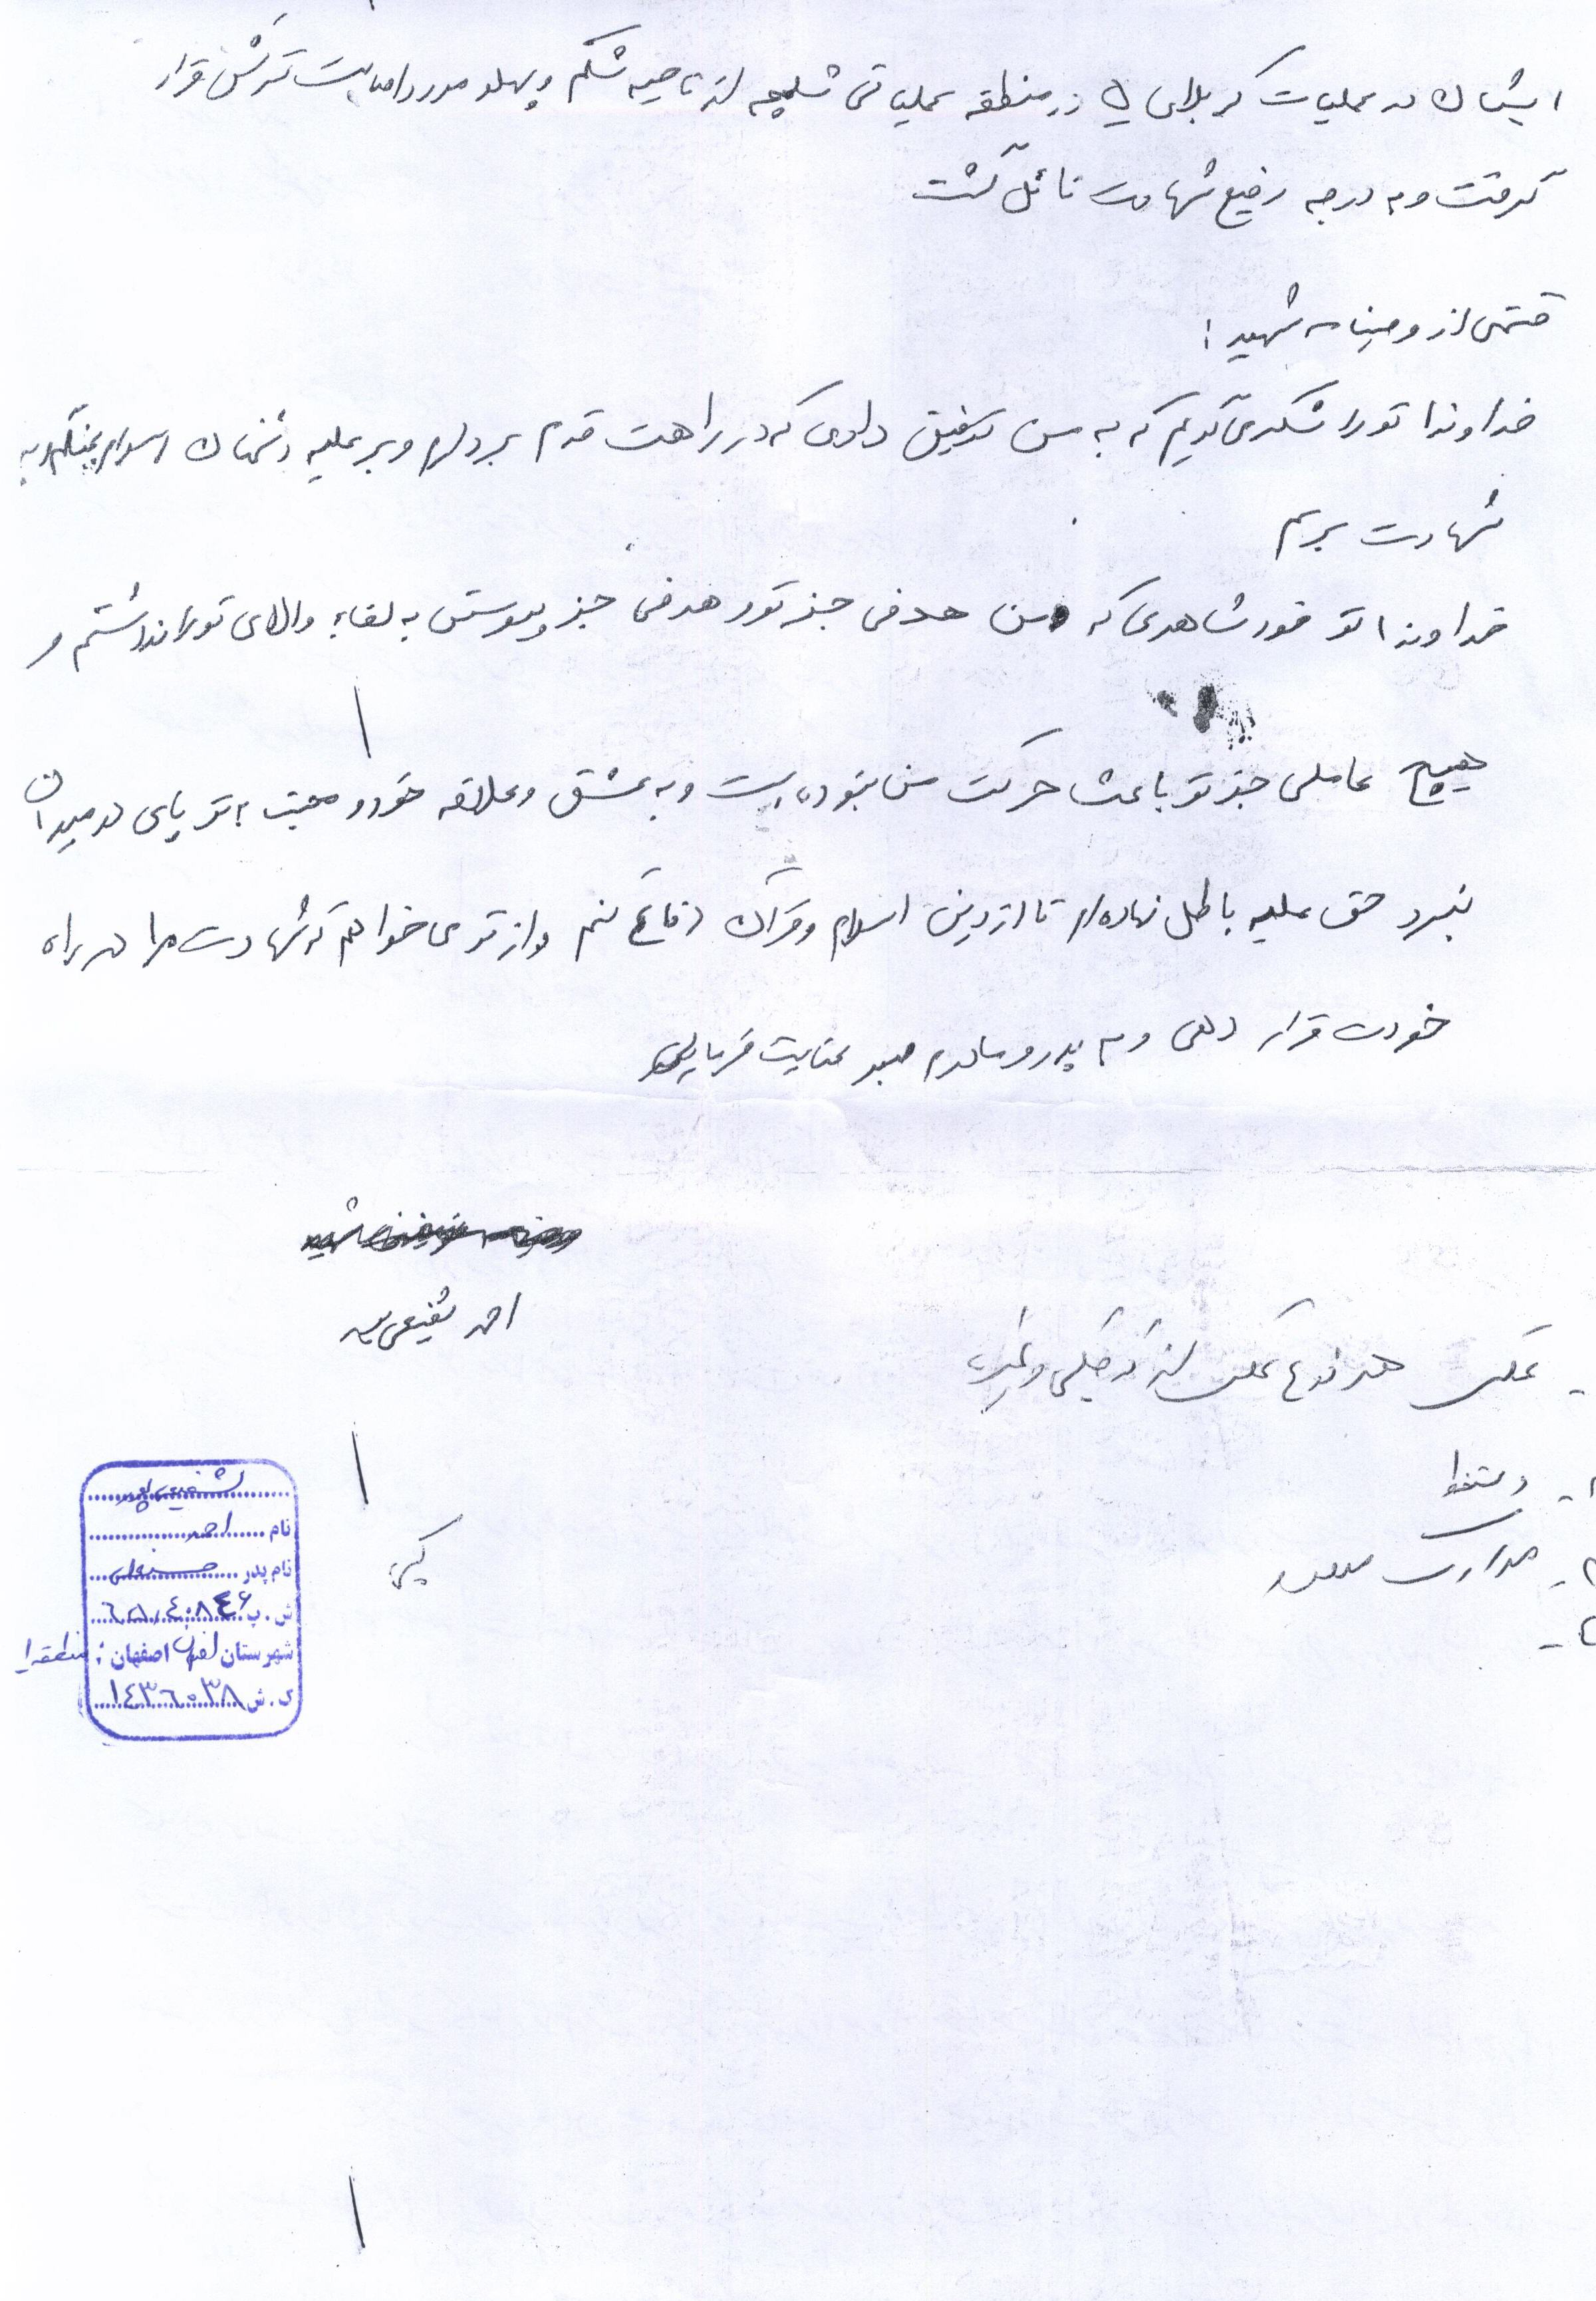 ایشان در عملیات کربلای ۵ در منطقه عملیاتی شلمچه از ناحیه شکم و پهلو مورد اصابت ترکش قرار
گرفت و به درجه رفیع شهادت نائل گشت
قسمتی از وصیتنامه شهید :
خداوندا تو را شکر می گویم که به من توفیق دادی که در راهت قدم بردارم و بر علیه دشمنان اسلام بجنگم و به
شهادت برسم
خداوندا تو خود شاهدی که من هدفی جز تو و هدفی جز پیوستن به لقاء والای تو را نداشتم و
هیچ عاملی جز تو باعث حرکت من نبوده است و به عشق و علاقه خود و محبت به تو پای در میدان
نبرد حق علیه باطل نهاده‌ام تا از دین اسلام و قرآن دفاع کنم و از تو می خواهم که شهادت مرا در راه
خودت قرار دهی و به پدر و مادرم صبر عنایت فرمایی
احمد شفیعی پور
- عکس هر نوع عکس از کودکی و غیره
شفیعی پور
نام احمد
نام پدر حسنعلی
ش . پ ٦٥٠٤٠٨٤۶
شهرستان اصفهان : منطقه ۱
ک . ش ۱٤۳٦۰۳۸